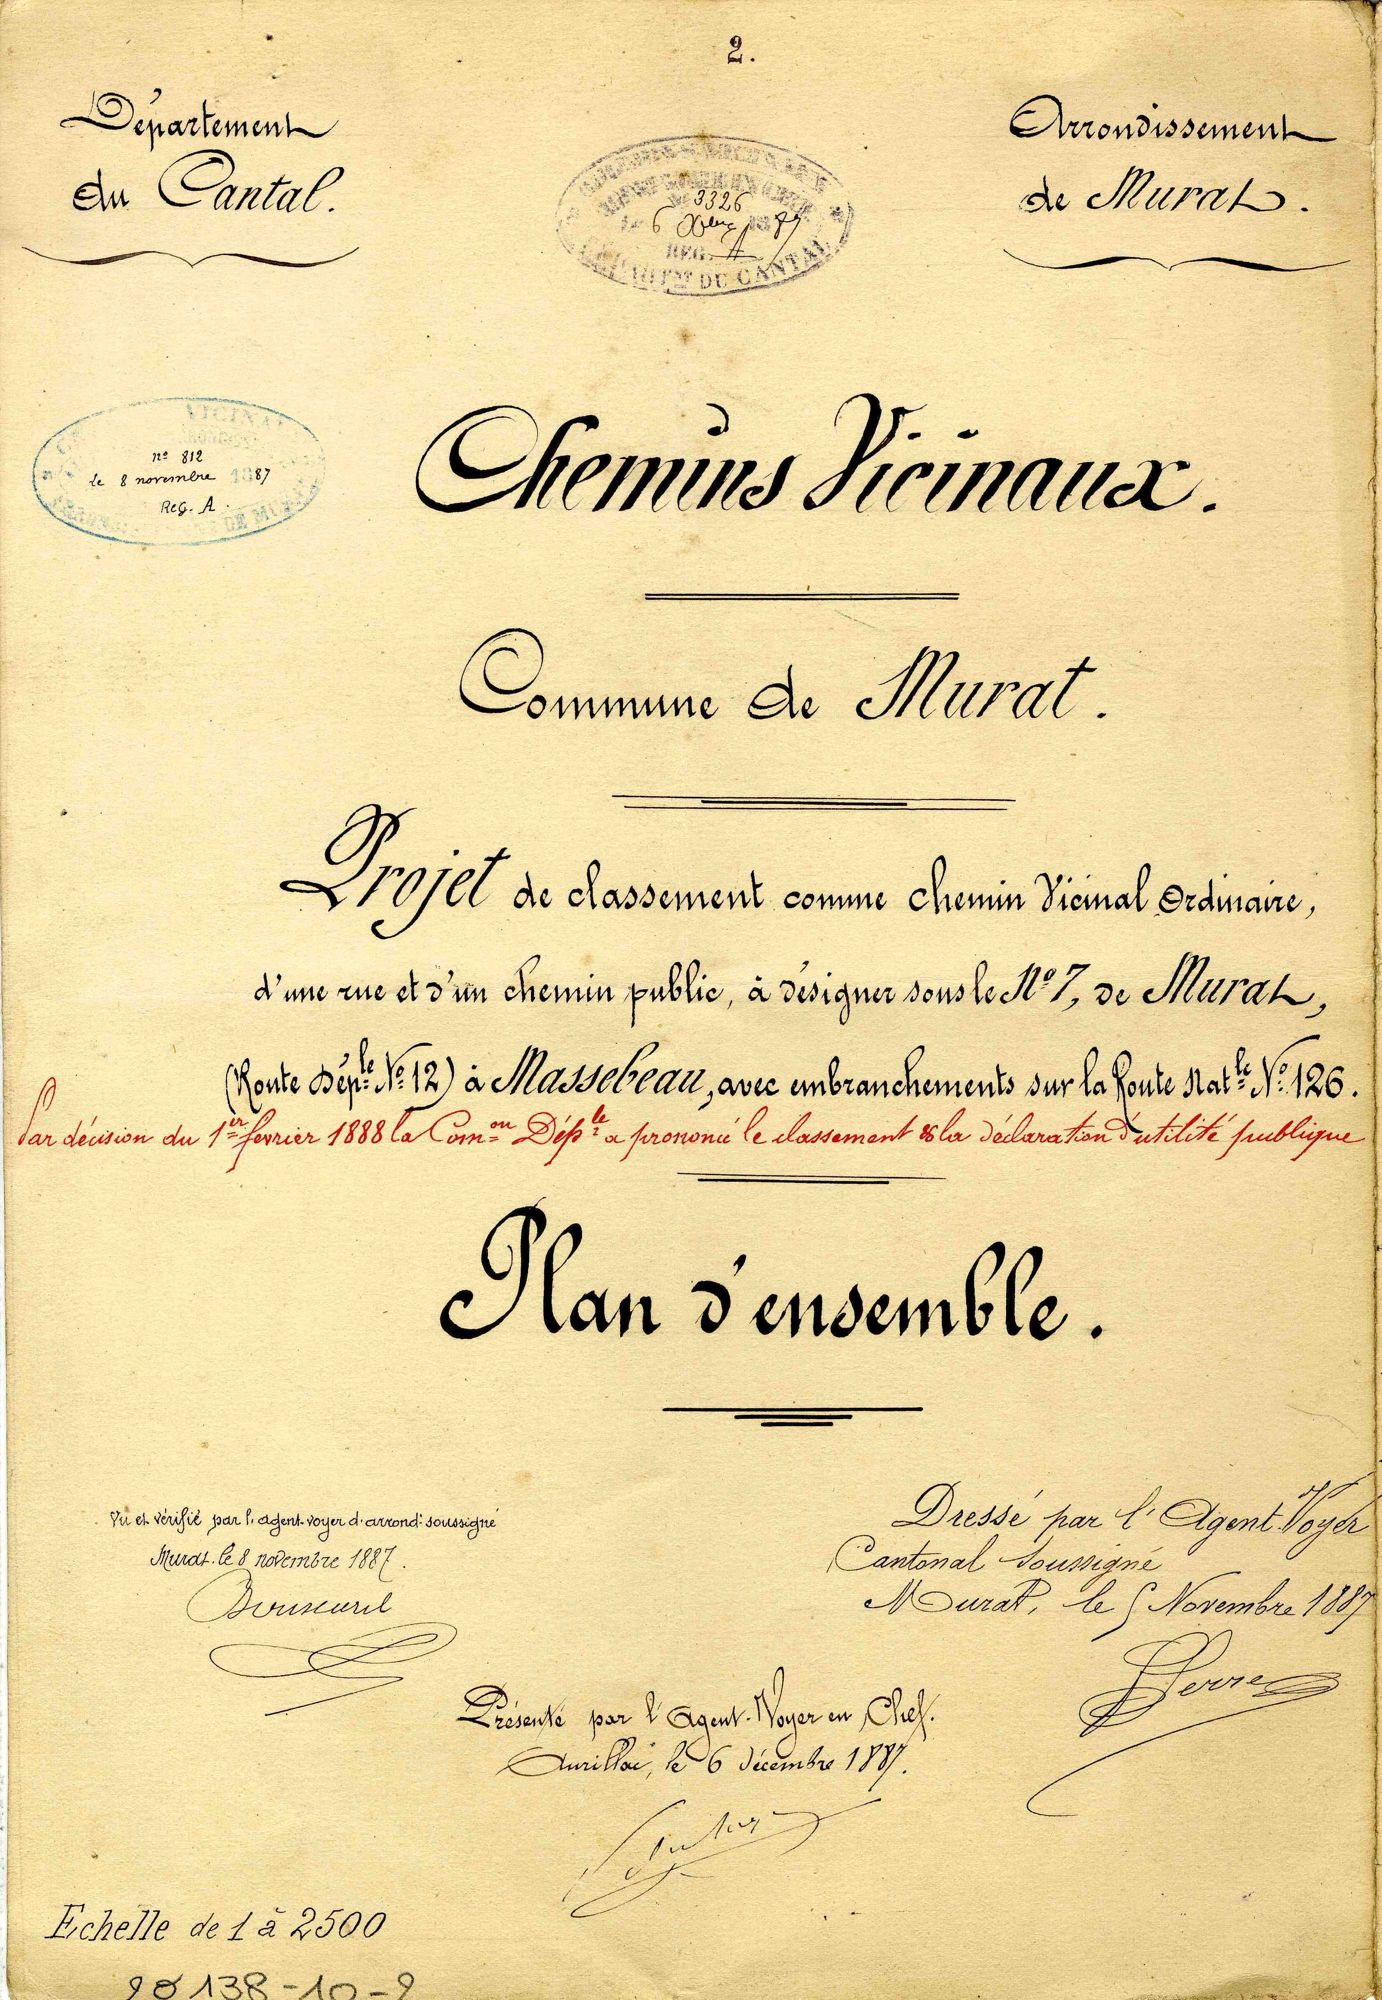 2.
Département
du Cantal.
Arrondissement
de Murat.
3326
6 Xbre 1887
REG. A
DÉPARTEMT DU CANTAL
VICINAL
nº 812
le 8 novembre 1887
Reg. A.
DE MURAT
Chemins Vicinaux.
Commune de Murat.
Projet de classement comme chemin Vicinal Ordinaire,
d'une rue et d'un chemin public, à désigner sous le Nº 7, de Murat,
(Route Déple Nº 12) à Massebeau, avec embranchements sur la Route Natle Nº 126.
Par décision du 1er février 1888 la Comon Déple a prononcé le classement & la déclaration d'utilité publique
Plan d'ensemble.
Vu et vérifié par l'agent-voyer d'arrondt soussigné
Murat. le 8 novembre 1887.
Dressé par l'Agent-Voyer
Cantonal soussigné
Murat, le 5 Novembre 1887
Serre
Présenté par l'Agent-Voyer en Chef.
Aurillac, le 6 décembre 1887.
Echelle de 1 à 2500
138-10-2